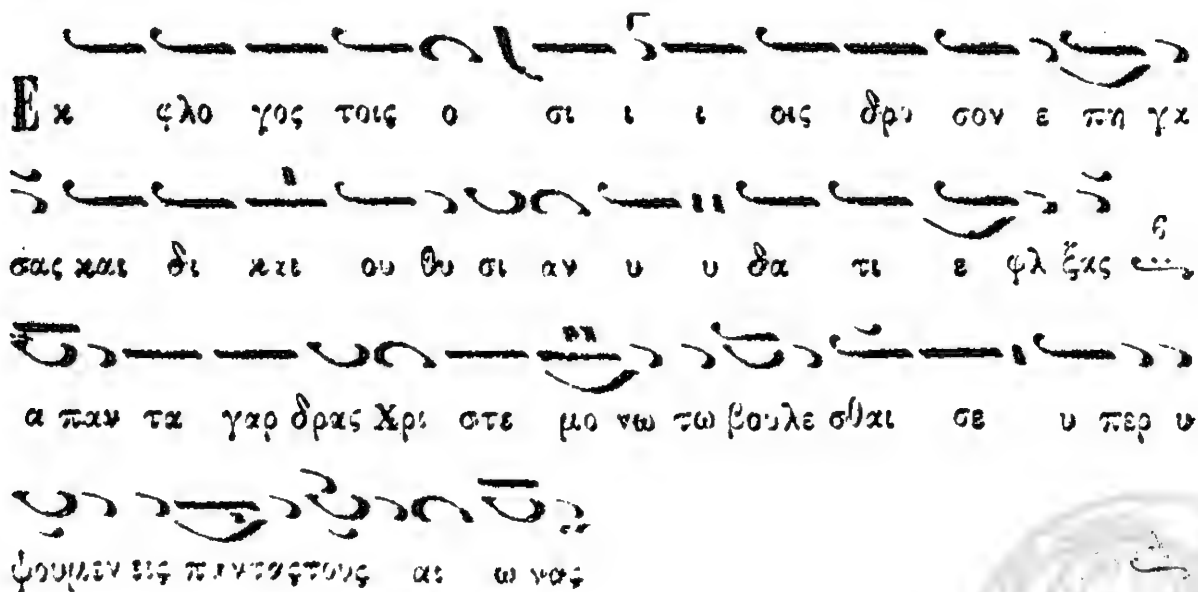 Εκ φλο γος τοις ο σι ι ι οις δρο σον ε πη γα
σας και δι και ου θυ σι αν υ υ δα τι ε φλ ξας
α παν τα γαρ δρας Χρι στε μο νω τω βουλε σθαι σε υ περ υ
ψουμεν εις πανταςτους αι ω νας